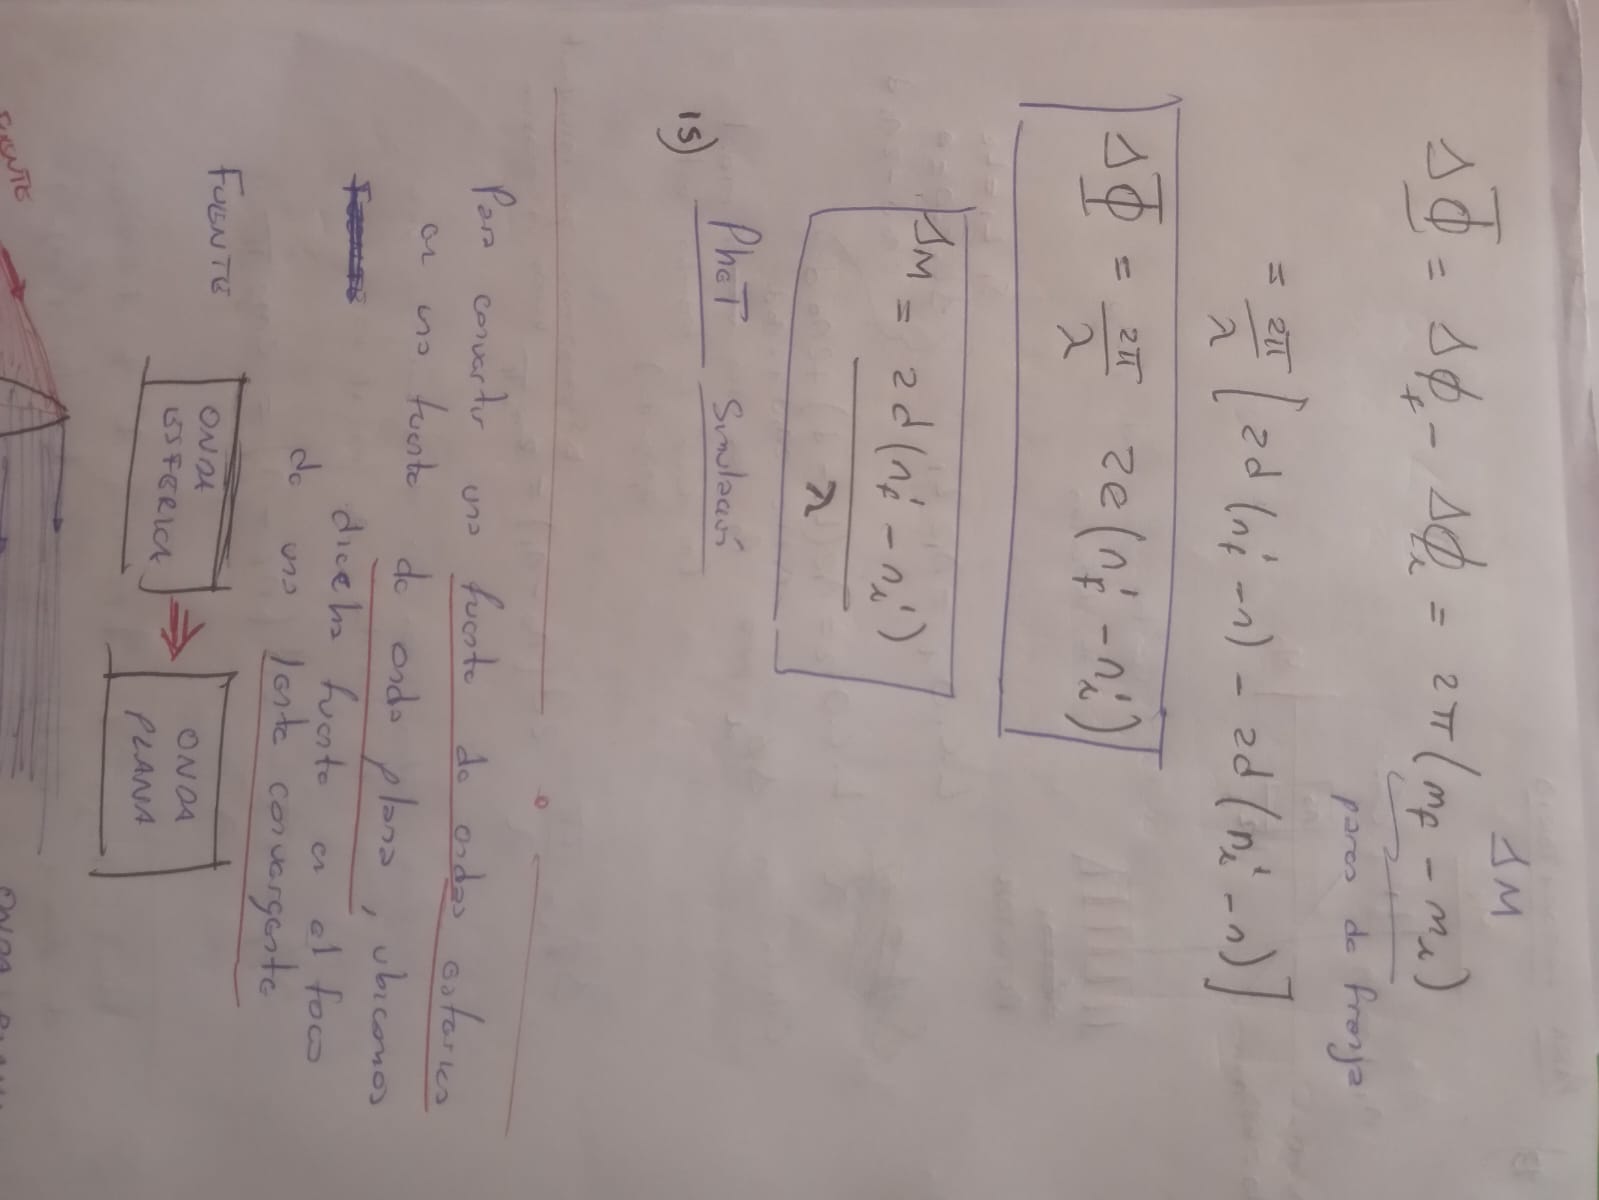 ΔM
ΔΦ = Δϕ_f - Δϕ_i = 2π(m_f - m_i)
pares de franja
= 2π/λ [2d(n'_f - n) - 2d(n'_i - n)]
ΔΦ = 2π/λ 2e(n'_f - n'_i)
ΔM = 2d(n'_f - n'_i)/λ
15) PheT Simulación
Para convertir una fuente de ondas esfericas
en una fuente de onda plana, ubicamos
dicha fuente en el foco
de una lente convergente
FUENTE
ONDA ESFERICA ⇒ ONDA PLANA
FUENTE
ONDA